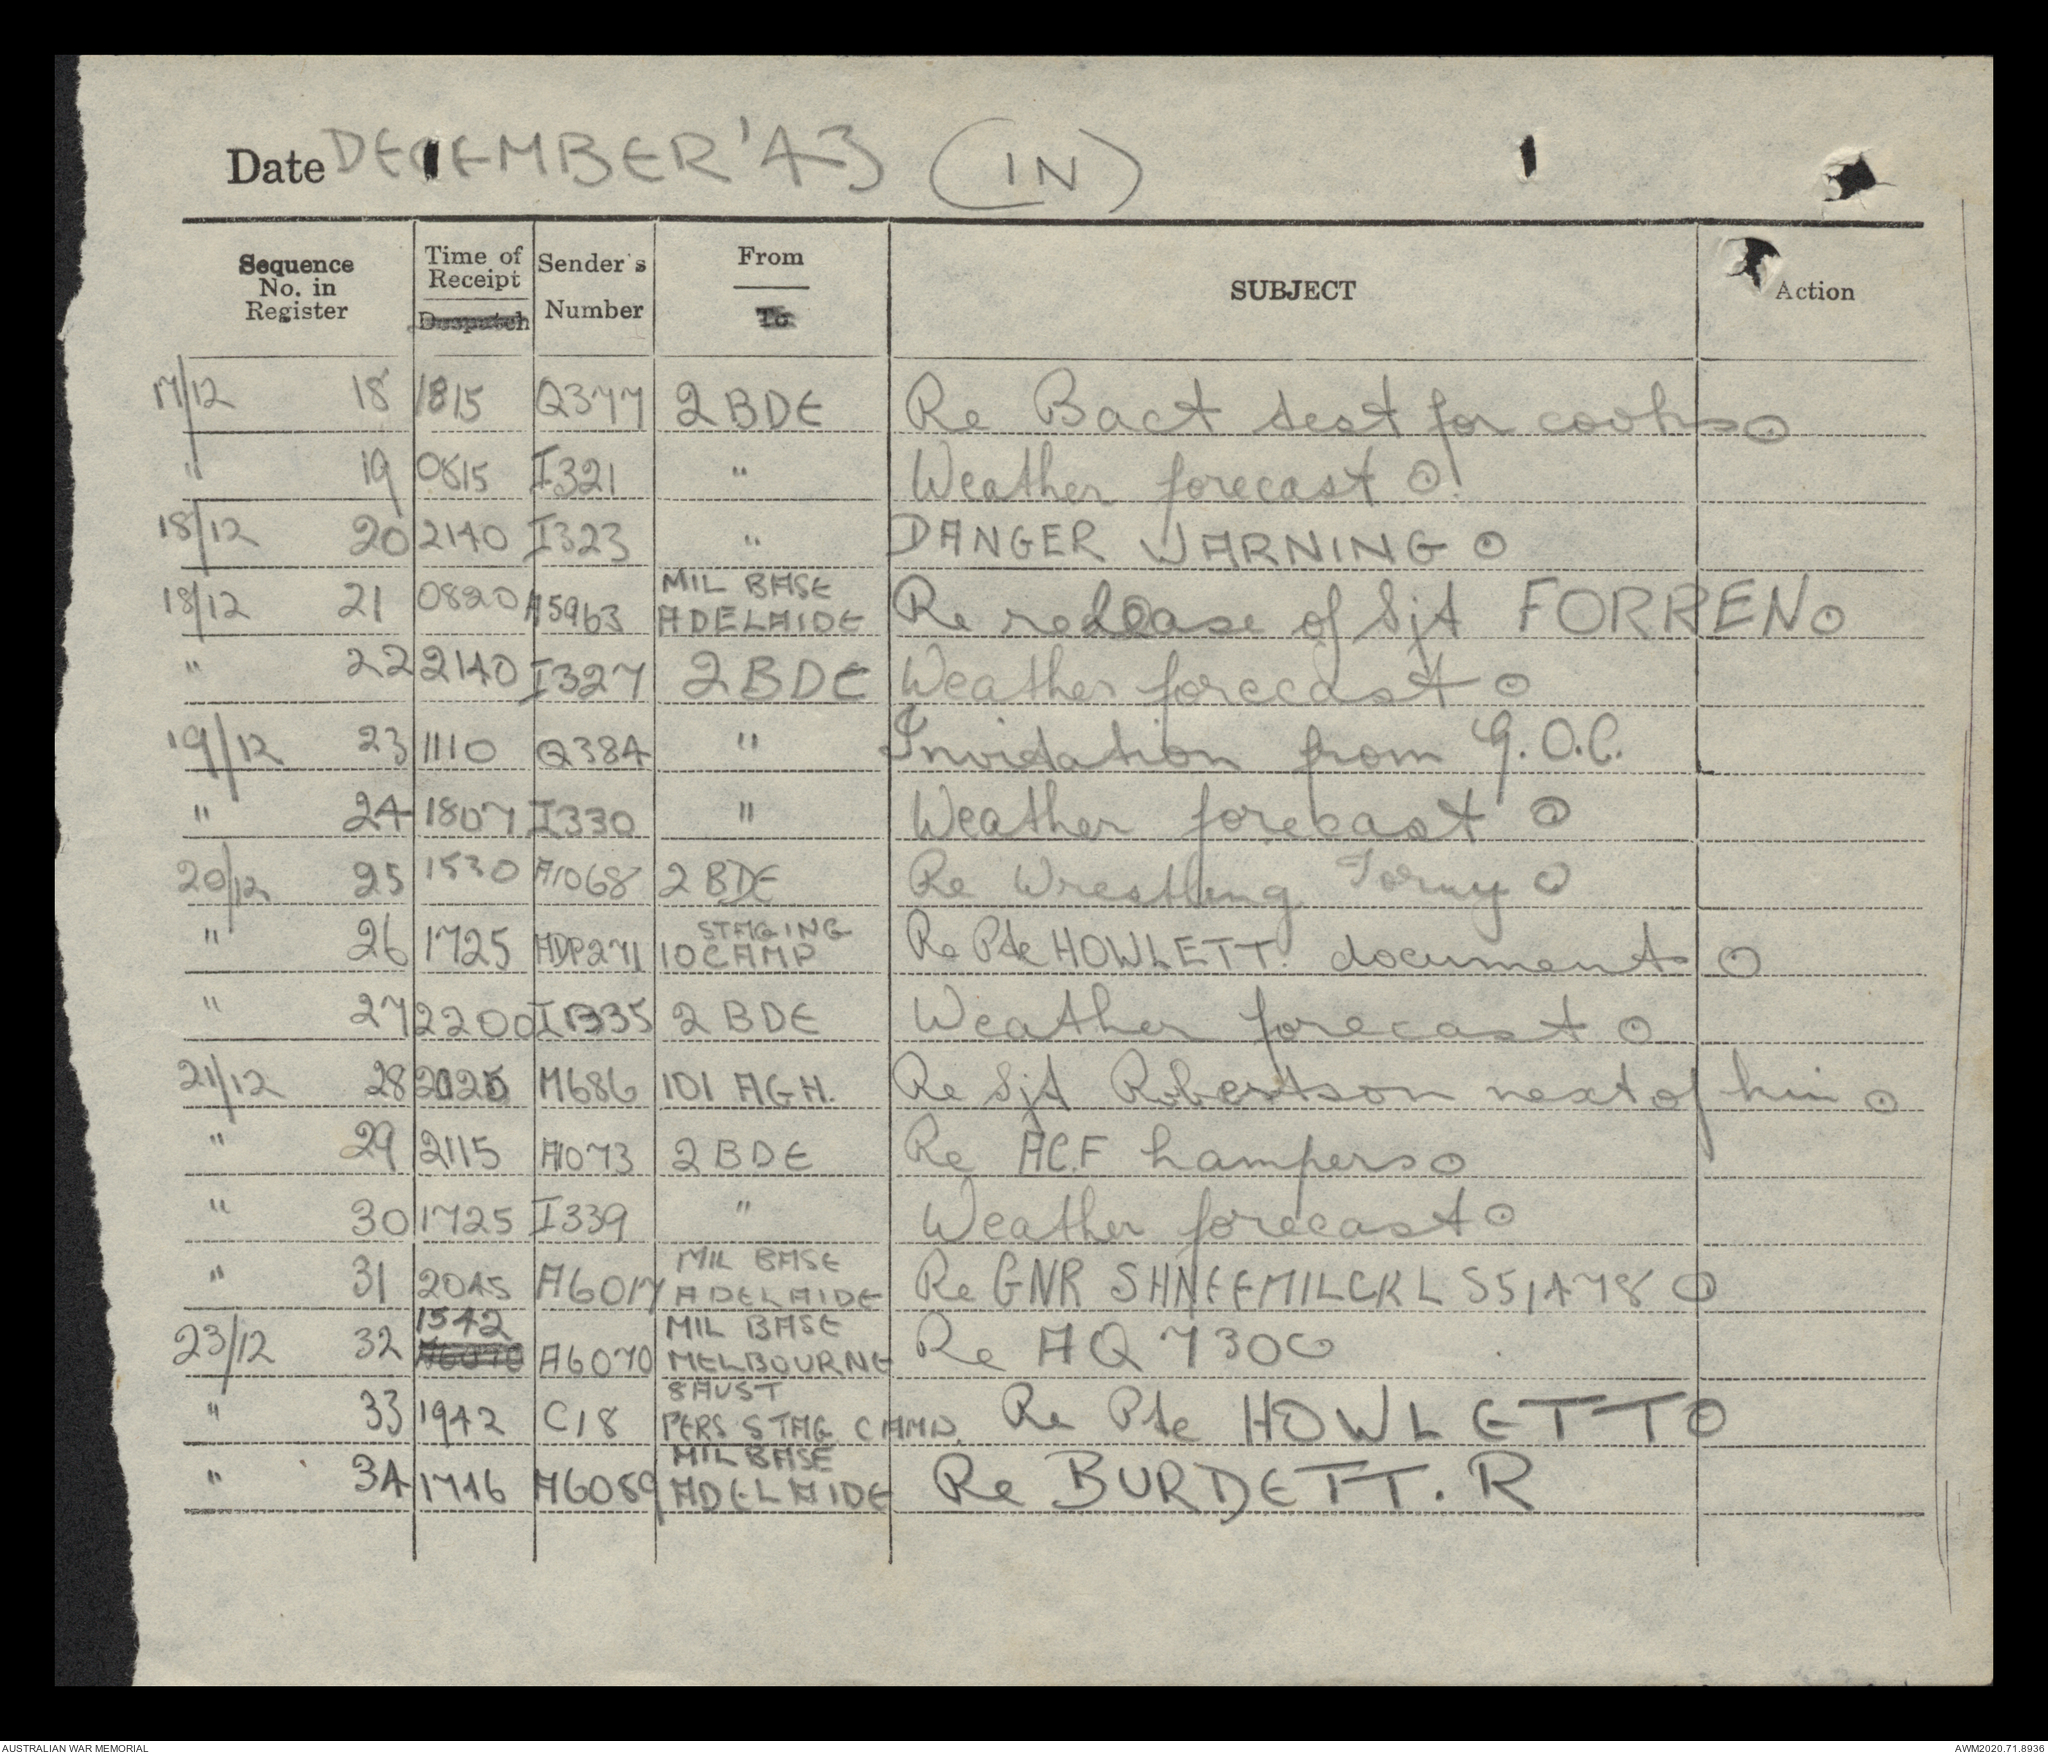 Date DECEMBER '43 (IN)
Sequence No. in Register
Time of Receipt
Despatch
Sender's Number
From
To
SUBJECT
Action
17/12 18 1815 Q377 2 BDE Re Bact test for cooks ⊙
" 19 0815 I321 " Weather forecast ⊙
18/12 20 2140 I323 " DANGER WARNING ⊙
18/12 21 0820 A5963 MIL BASE ADELAIDE Re release of Sjt FORREN ⊙
" 22 2140 I327 2 BDE Weather forecast ⊙
19/12 23 1110 Q384 " Invitation from G.O.C.
" 24 1807 I330 " Weather forecast ⊙
20/12 25 1530 A1068 2 BDE Re Wrestling Torny ⊙
" 26 1725 ADP271 10 STAGING CAMP Re Pte HOWLETT. documents ⊙
" 27 2200 I335 2 BDE Weather forecast ⊙
21/12 28 M686 101 AGH. Re Sjt Robertson next of kin ⊙
" 29 2115 A1073 2 BDE Re ACF hampers ⊙
" 30 1725 I339 " Weather forecast ⊙
" 31 2045 A6017 MIL BASE ADELAIDE Re GNR S51478 ⊙
23/12 32 1542 A6070 MIL BASE MELBOURNE Re AQ 7300
" 33 1942 C18 8 AUST PERS STAG CAMP. Re Pte HOWLETT ⊙
" 34 1746 A6089 MIL BASE ADELAIDE Re BURDETT. R
AUSTRALIAN WAR MEMORIAL
AWM2020.71.8936